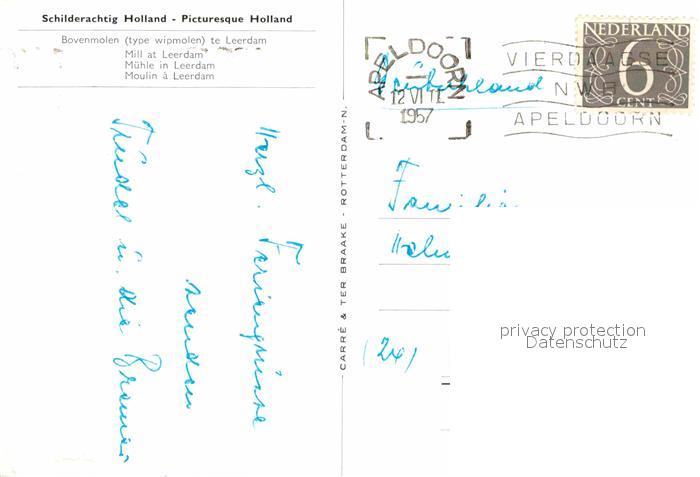 Schilderachtig Holland - Picturesque Holland
Bovenmolen (type wipmolen) te Leerdam
Mill at Leerdam
Mühle in Leerdam
Moulin à Leerdam
Herzl. Feriengrüsse
senden
u. die
CARRÉ & TER BRAAKE - ROTTERDAM-N.
APELDOORN
12 VI 11
1957
VIERDAAGSE
N W B
APELDOORN
NEDERLAND
6
CENT
Familie
(24)
privacy protection
Datenschutz